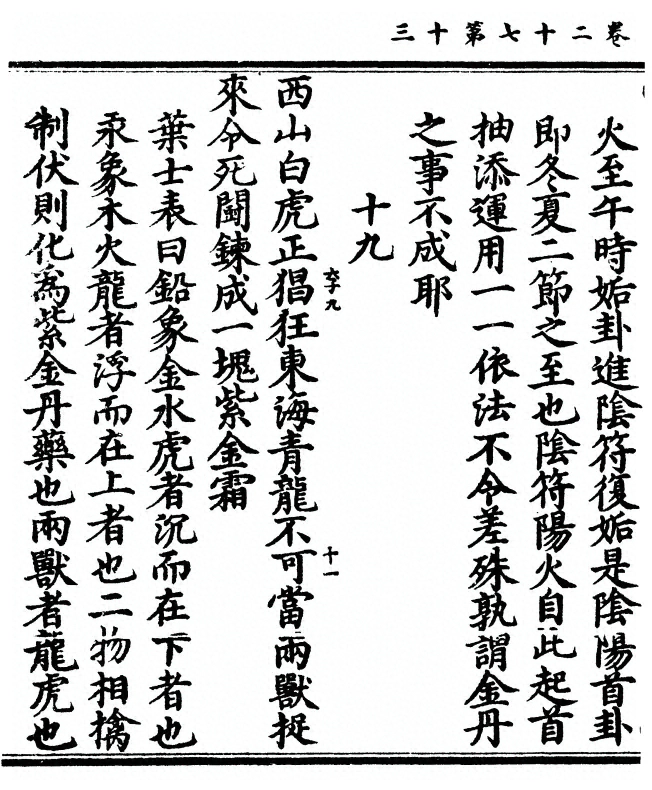 卷二十七第十三
火至午時姤卦進陰符復姤是陰陽首卦
即冬夏二節之至也陰符陽火自此起首
抽添運用一一依法不令差殊孰謂金丹
之事不成耶
十九
西山白虎正猖狂東海青龍不可當兩獸捉
來令死鬪鍊成一塊紫金霜
葉士表曰鉛象金水虎者沉而在下者也
汞象木火龍者浮而在上者也二物相擒
制伏則化為紫金丹藥也兩獸者龍虎也
十一